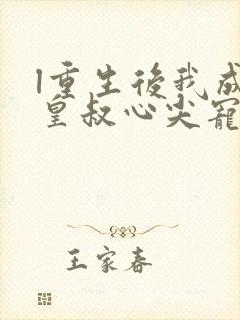 1重生後我成
皇叔心尖寵
王家春